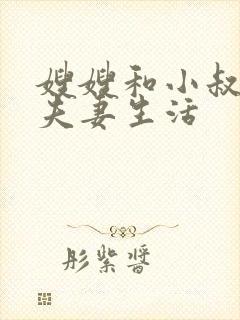 嫂嫂和小叔
夫妻生活
彤紫醬